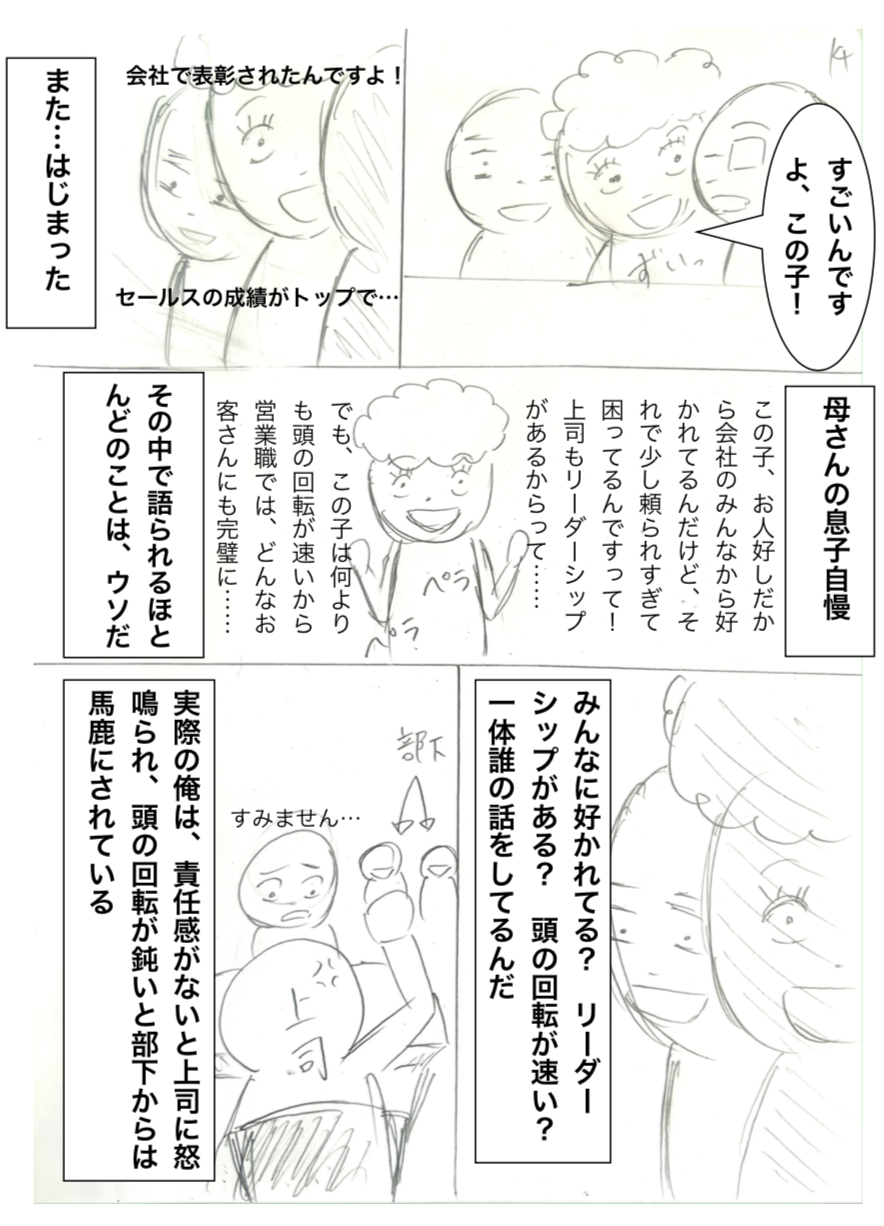 14
すごいんです
よ、この子！
ずいっ
会社で表彰されたんですよ！
セールスの成績がトップで…
また…はじまった
母さんの息子自慢
この子、お人好しだか
ら会社のみんなから好
かれてるんだけど、そ
れで少し頼られすぎて
困ってるんですって！
上司もリーダーシップ
があるからって……
ペラ
ペラ
でも、この子は何より
も頭の回転が速いから
営業職では、どんなお
客さんにも完璧に……
その中で語られるほと
んどのことは、ウソだ
みんなに好かれてる？　リーダー
シップがある？　頭の回転が速い？
一体誰の話をしてるんだ
部下
すみません…
上司
実際の俺は、責任感がないと上司に怒
鳴られ、頭の回転が鈍いと部下からは
馬鹿にされている